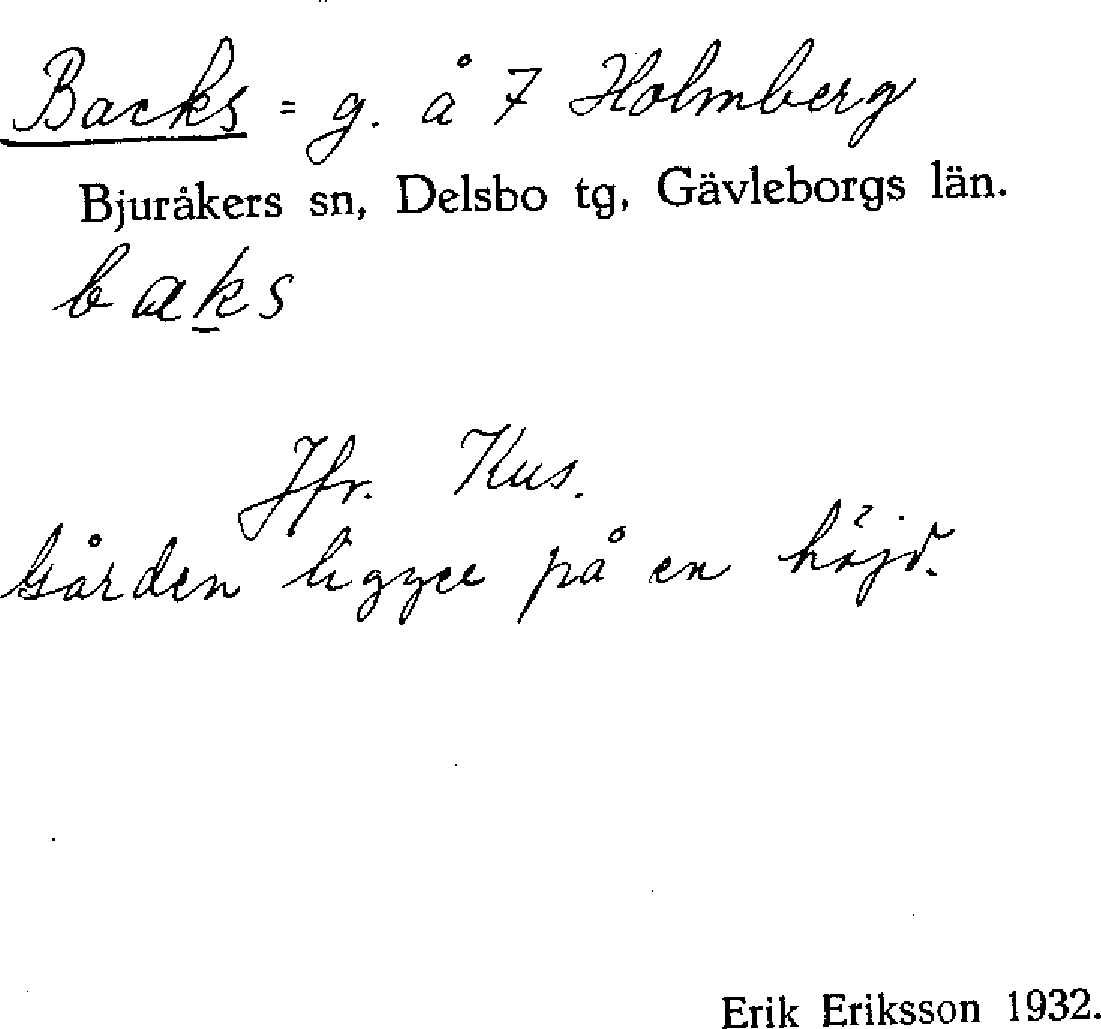 Backs = g. å 7 Holmberg
Bjuråkers sn, Delsbo tg, Gävleborgs län.
baks
Jfr. Kus.
Gården ligger på en höjd.
Erik Eriksson 1932.